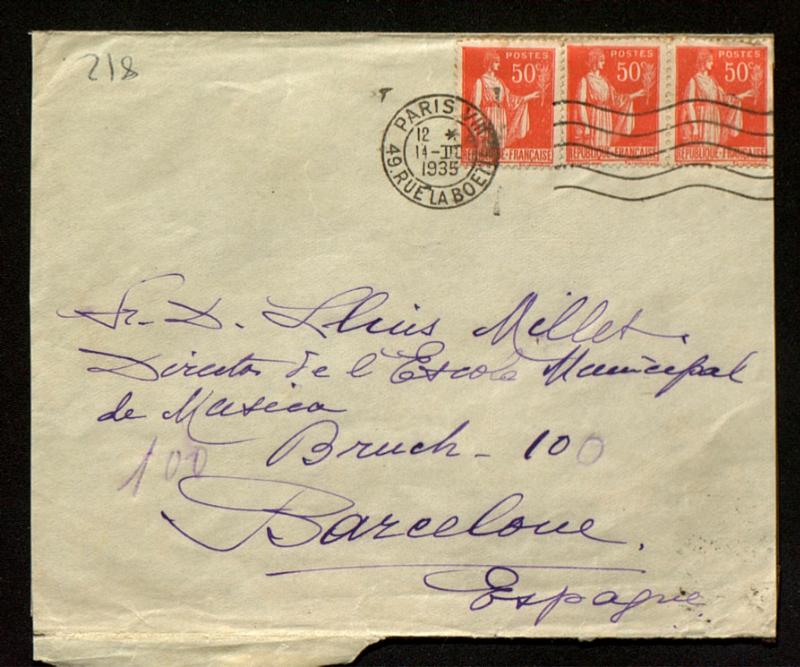 218
POSTES POSTES POSTES
50c 50c 50c
RÉPUBLIQUE FRANÇAISE RÉPUBLIQUE FRANÇAISE RÉPUBLIQUE FRANÇAISE
PARIS VIII
12 *
14-III
1935
49.RUE LA BOETIE
Sr. D. Lluis Millet.
Director de l'Escola Municipal
de Musica
Bruch - 100
100
Barcelone.
Espagne.